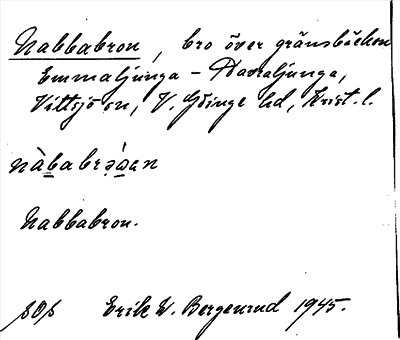 Nabbabron, bro över gränsbäcken
Emmaljunga - Davaljunga,
Vittsjö sn, V. Göinge hd, Krist. l.
Nabbabron.
Erik W. Bergenrud 1945.